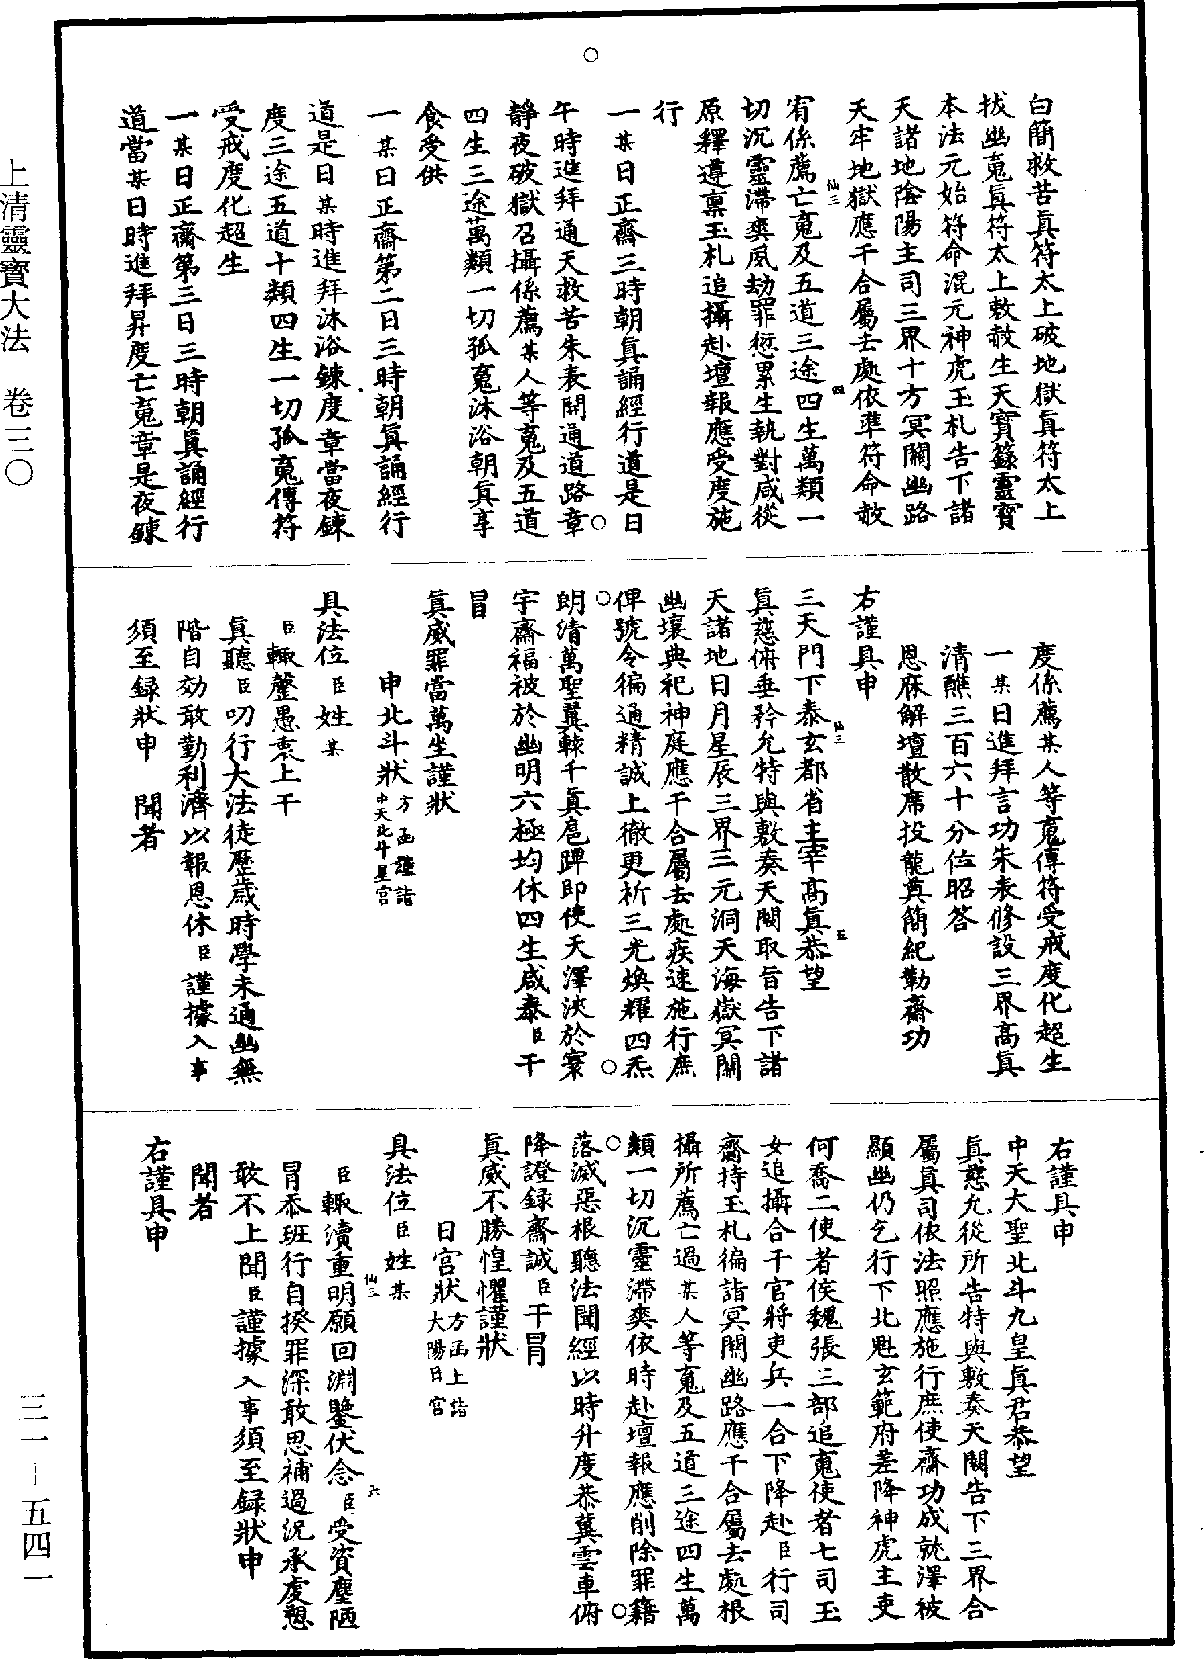 白簡救苦真符太上破地獄真符太上
拔幽䰟真符太上敕赦生天寶籙靈寶
本法元始符命混元神虎玉札告下諸
天諸地陰陽主司三界十方冥關幽路
天牢地獄應干合屬去處依準符命赦
宥係薦亡䰟及五道三途四生萬類一
切沉靈滯爽夙劫罪愆累生執對咸從
原釋遵禀玉札追攝赴壇報應受度施
行
一某日正齋三時朝真誦經行道是日
午時進拜通天救苦朱表關通道路章
靜夜破獄召攝係薦某人等䰟及五道
四生三途萬類一切孤䰟沐浴朝真享
食受供
一某日正齋第二日三時朝真誦經行
道是日某時進拜沐浴鍊度章當夜鍊
度三途五道十類四生一切孤䰟傳符
受戒度化超生
一某日正齋第三日三時朝真誦經行
道當某日時進拜昇度亡䰟章是夜鍊
度係薦某人等䰟傳符受戒度化超生
一某日進拜言功朱表修設三界高真
清醮三百六十分位昭答
恩庥解壇散席投龍奠簡紀勒齋功
右謹具申
三天門下泰玄都省主宰高真恭望
真慈俯垂矜允特與敷奏天闕取旨告下諸
天諸地日月星辰三界三元洞天海嶽冥關
幽壤典祀神庭應干合屬去處疾速施行庶
俾號令徧通精誠上徹更祈三光煥耀四炁
朗清萬聖翼轅千真扈蹕即使天澤浹於寰
宇齋福被於幽明六極均休四生咸泰臣干
冒
真威罪當萬坐謹狀
申北斗狀方函謹詣中天北斗星宮
具法位臣姓某
臣輙罄愚衷上干
真聽臣叨行大法徒歷歲時學未通幽無
階自効敢勤利濟以報恩休臣謹據入事
須至録狀申　聞者
右謹具申
中天大聖北斗九皇真君恭望
真慈允從所告特與敷奏天闕告下三界合
屬真司依法照應施行庶使齋功成就澤被
顯幽仍乞行下北魁玄範府差降神虎主吏
何喬二使者侯魏張三部追䰟使者七司玉
女追攝合干官將吏兵一合下降赴臣行司
齋持玉札徧詣冥關幽路應干合屬去處根
攝所薦亡過某人等䰟及五道三途四生萬
類一切沉靈滯爽依時赴壇報應削除罪籍
落滅惡根聽法聞經以時升度恭冀雲車俯
降證録齋誠臣干冒
真威不勝惶懼謹狀
日宮狀方函上詣大陽日宮
具法位臣姓某
臣輙瀆重明願回淵鑒伏念臣受資塵陋
冒忝班行自揆罪深敢思補過況承虔懇
敢不上聞臣謹據入事須至録狀申
聞者
右謹具申
上清靈寶大法　卷三〇
三一－五四一